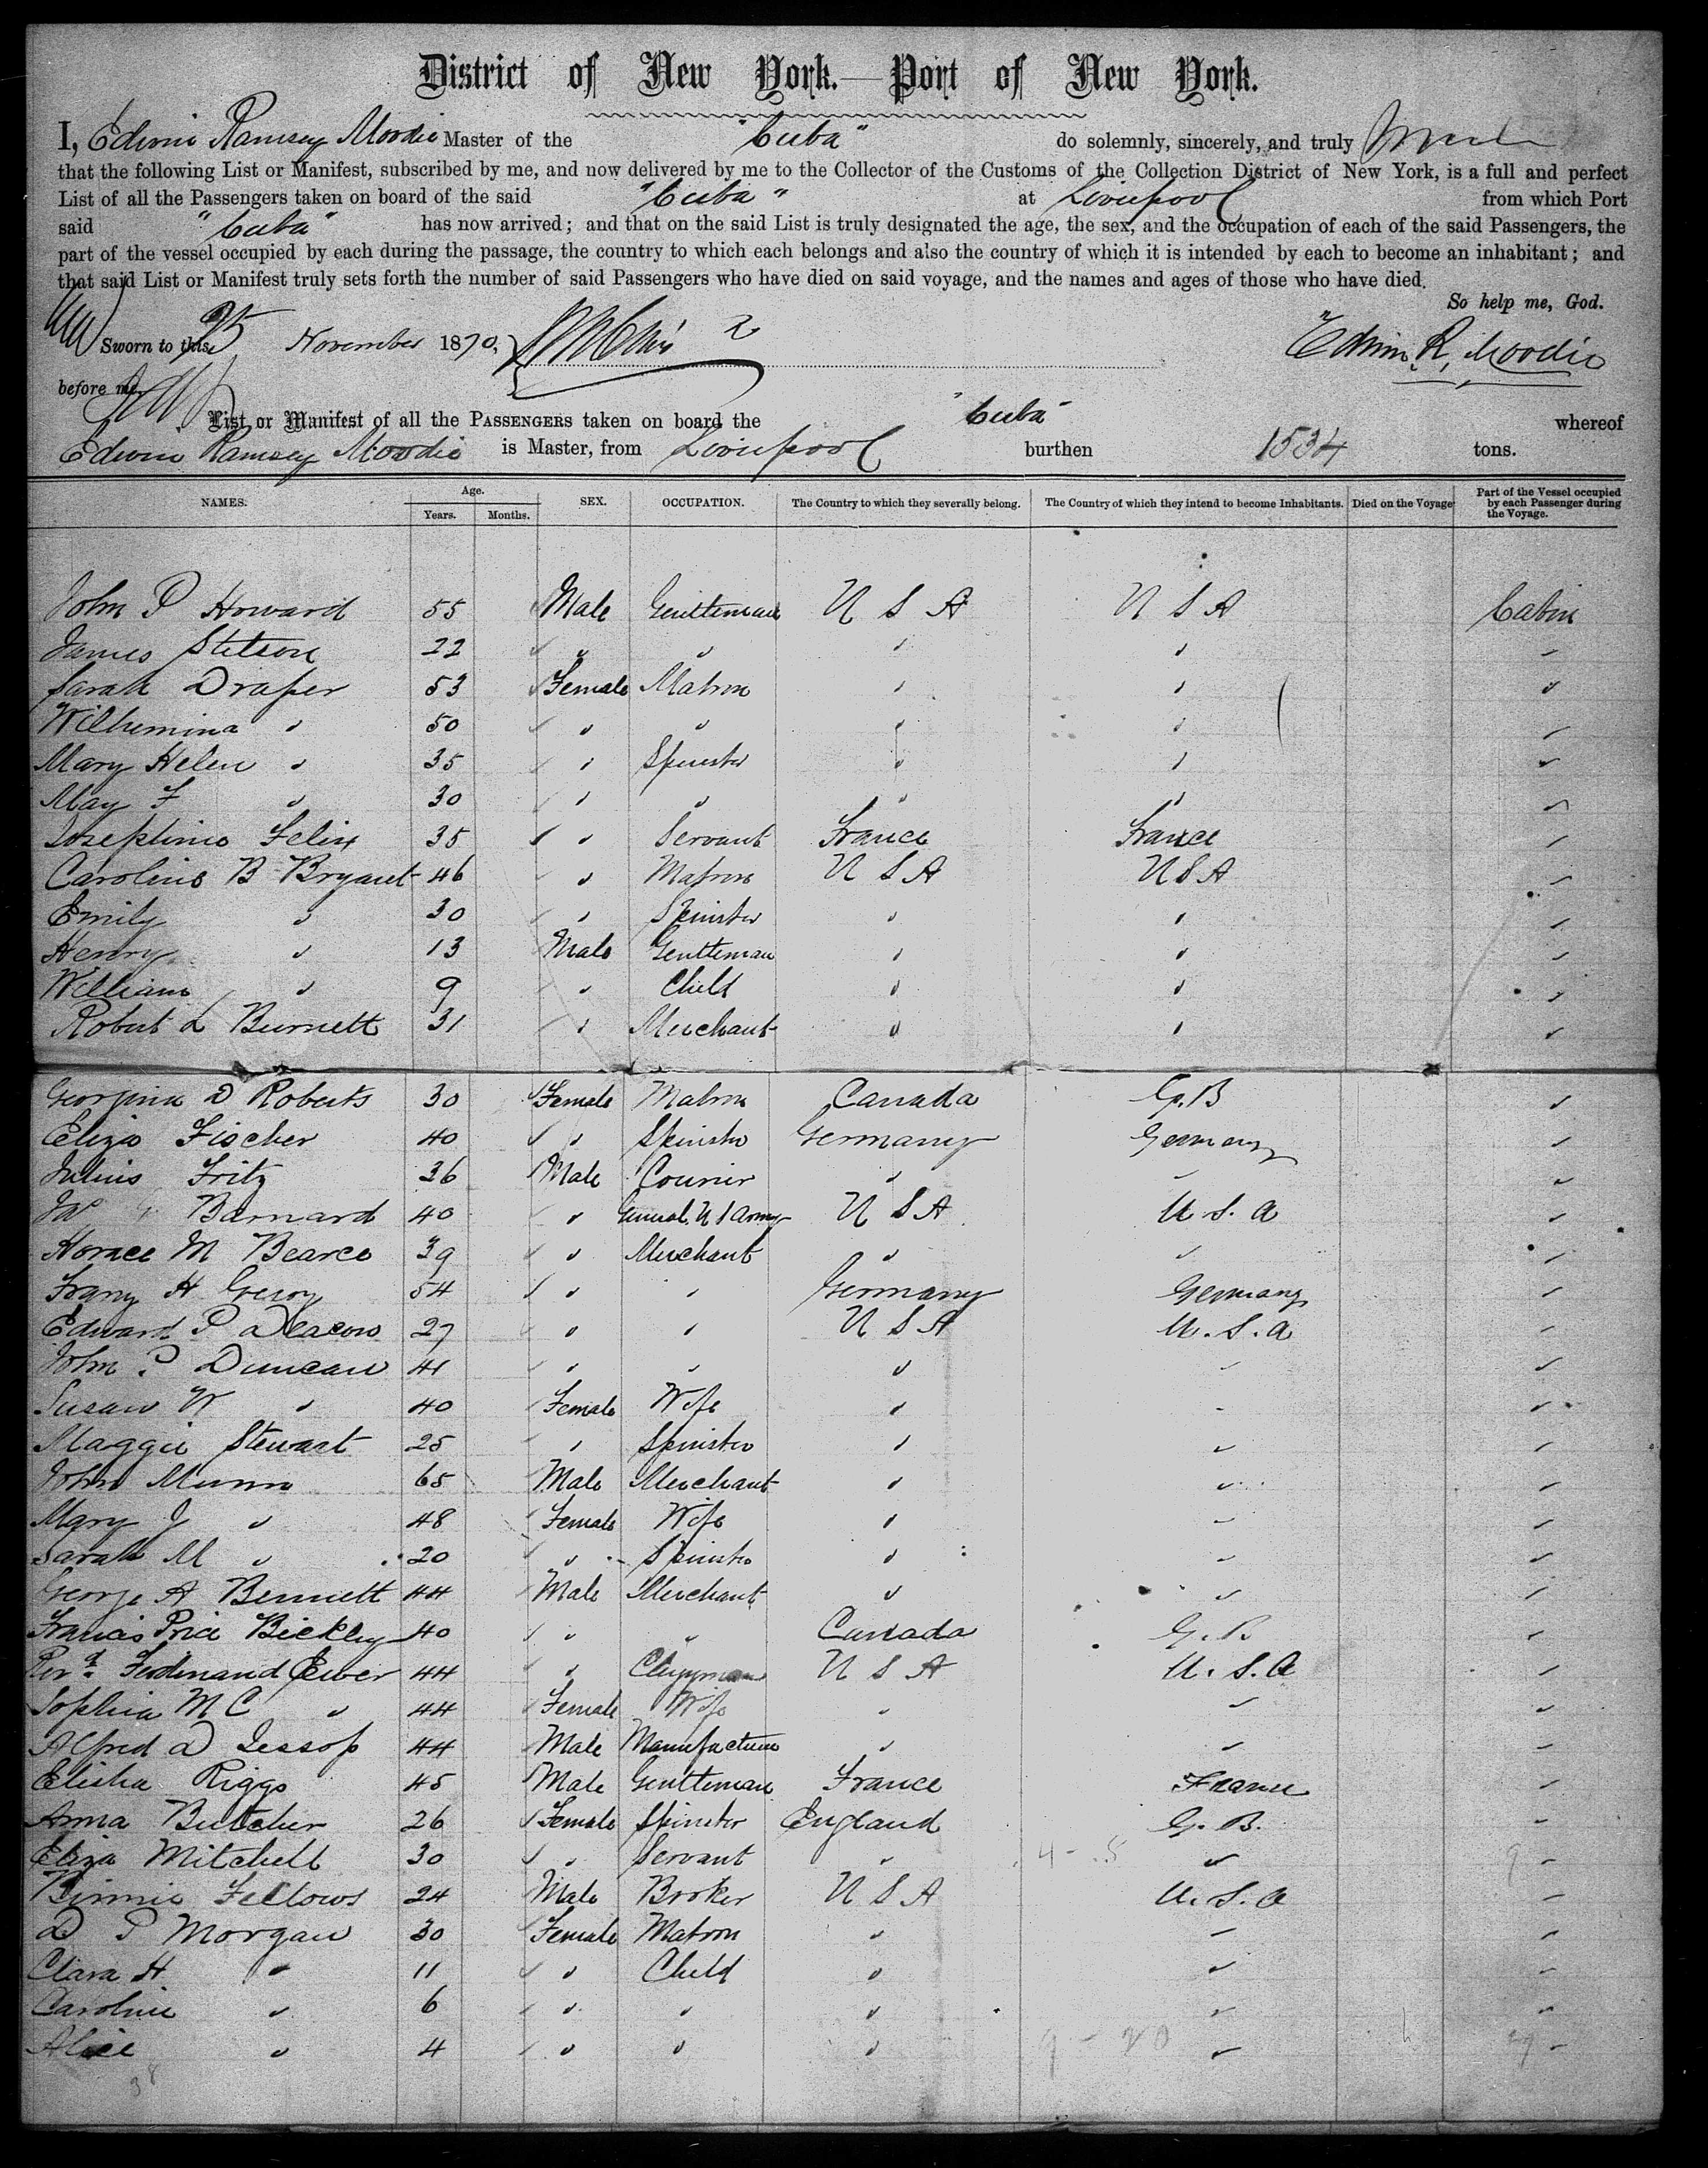 District of New York.—Port of New York.
I, Edwin Ramsey Moodie Master of the "Cuba" do solemnly, sincerely, and truly
that the following List or Manifest, subscribed by me, and now delivered by me to the Collector of the Customs of the Collection District of New York, is a full and perfect
List of all the Passengers taken on board of the said "Cuba" at Liverpool from which Port
said "Cuba" has now arrived; and that on the said List is truly designated the age, the sex, and the occupation of each of the said Passengers, the
part of the vessel occupied by each during the passage, the country to which each belongs and also the country of which it is intended by each to become an inhabitant; and
that said List or Manifest truly sets forth the number of said Passengers who have died on said voyage, and the names and ages of those who have died.
So help me, God.
Sworn to this 25 November 1870, Edwin R. Moodie
before me
List or Manifest of all the PASSENGERS taken on board the "Cuba" whereof
Edwin Ramsey Moodie is Master, from Liverpool burthen 1534 tons.
NAMES. Age. Years. Months. SEX. OCCUPATION. The Country to which they severally belong. The Country of which they intend to become Inhabitants. Died on the Voyage Part of the Vessel occupied by each Passenger during the Voyage.
John P Howard 55 Male Gentleman U S A U S A Cabin
James Stetson 22 " " " " "
Sarah Draper 53 Female Matron " " "
Wilhemina " 50 " " " " "
Mary Helen " 35 " Spinster " " "
May F " 30 " " " " "
Josephine Felix 35 " Servant France France "
Caroline B Bryant 46 " Matron U S A U S A "
Emily " 30 " Spinster " " "
Henry " 13 Male Gentleman " " "
William " 9 " Child " " "
Robert L Burnett 31 " Merchant " " "
Georgina D Roberts 30 Female Matron Canada G. B "
Eliza Fischer 40 " Spinster Germany Germany "
Julius Fritz 36 Male Courier " " "
Barnard 40 " General U S Army U S A U. S. A "
Horace M Bearce 39 " Merchant " " "
Franz H 54 " " Germany Germany "
Edward P Deacon 27 " " U S A U. S. A "
John P Duncan 41 " " " " "
Susan W " 40 Female Wife " " "
Maggie Stewart 25 " Spinster " " "
John Munn 65 Male Merchant " " "
Mary J " 48 Female Wife " " "
Sarah M " 20 " Spinster " " "
George A Bennett 44 Male Merchant " " "
Francis Price Bickley 40 " " Canada G. B. "
Revd. Ferdinand Ewer 44 " Clergyman U S A U. S. A "
Sophia M C " 44 Female Wife " " "
Alfred D Jessop 44 Male Manufacturer " " "
Elisha Riggs 45 Male Gentleman France France "
Anna Butcher 26 Female Spinster England G. B. "
Eliza Mitchell 30 " Servant " " "
Fellows 24 Male Broker U S A U. S. A "
D P Morgan 30 Female Matron " " "
Clara H " 11 " Child " " "
Caroline " 6 " " " " "
Alice " 4 " " " " "
38